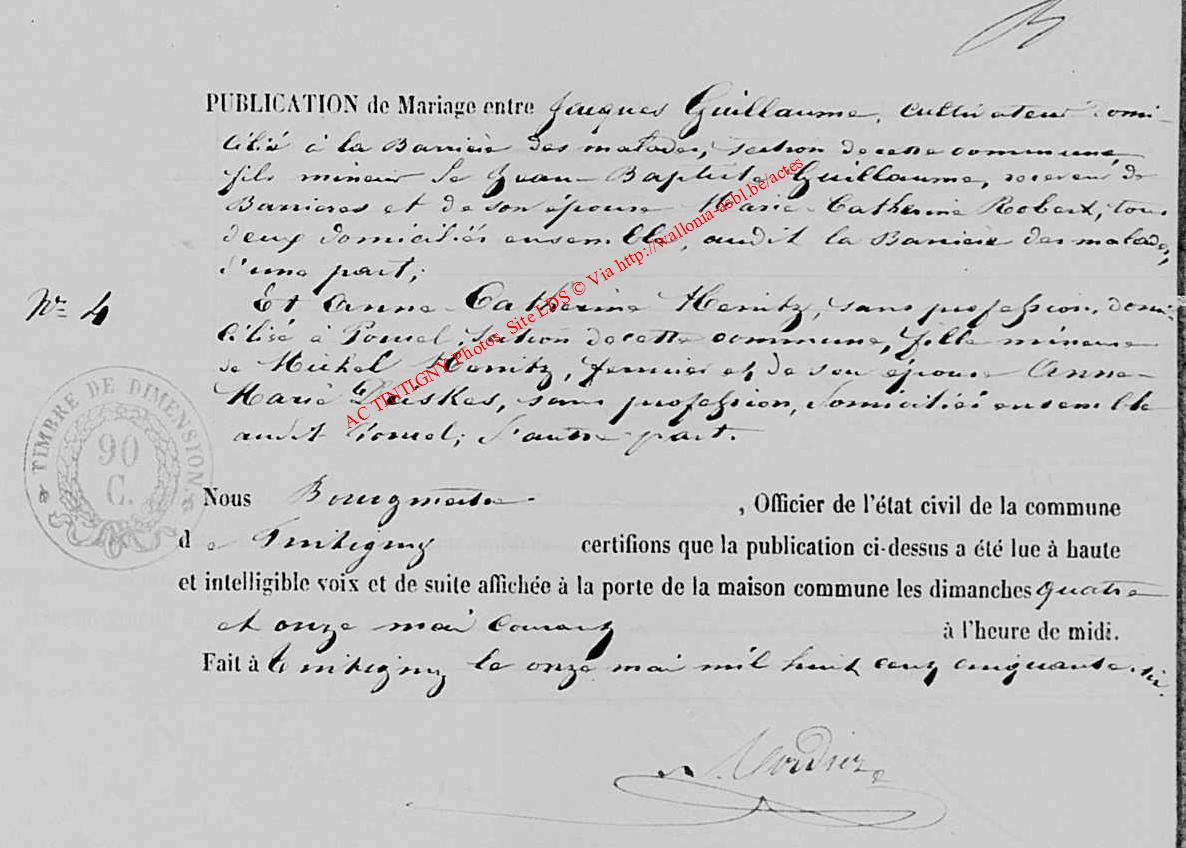 PUBLICATION de Mariage entre Jacques Guillaume, cultivateur domi-
cilié à la Barrière des malades, section de cette commune,
fils mineur de Jean-Baptiste Guillaume, receveur de
Barrières et de son épouse Marie-Catherine Robert, tous
deux domiciliés ensemble, audit la Barrière des malades,
d'une part;
Nr. 4
Et Anne-Catherine Henitz, sans profession, domi-
ciliée à Poncel, section de cette commune, fille mineure
de Michel Henitz, fermier et de son épouse Anne-
Marie, sans profession, domiciliés ensemble
audit Poncel; d'autre part.
TIMBRE DE DIMENSION.
90
C.
Nous Bourgmestre , Officier de l'état civil de la commune
de Tintigny certifions que la publication ci-dessus a été lue à haute
et intelligible voix et de suite affichée à la porte de la maison commune les dimanches quatre
et onze mai courant à l'heure de midi.
Fait à Tintigny le onze mai mil huit cent cinquante-six.
AC TINTIGNY Photos Site LDS © Via http://wallonia-asbl.be/actes